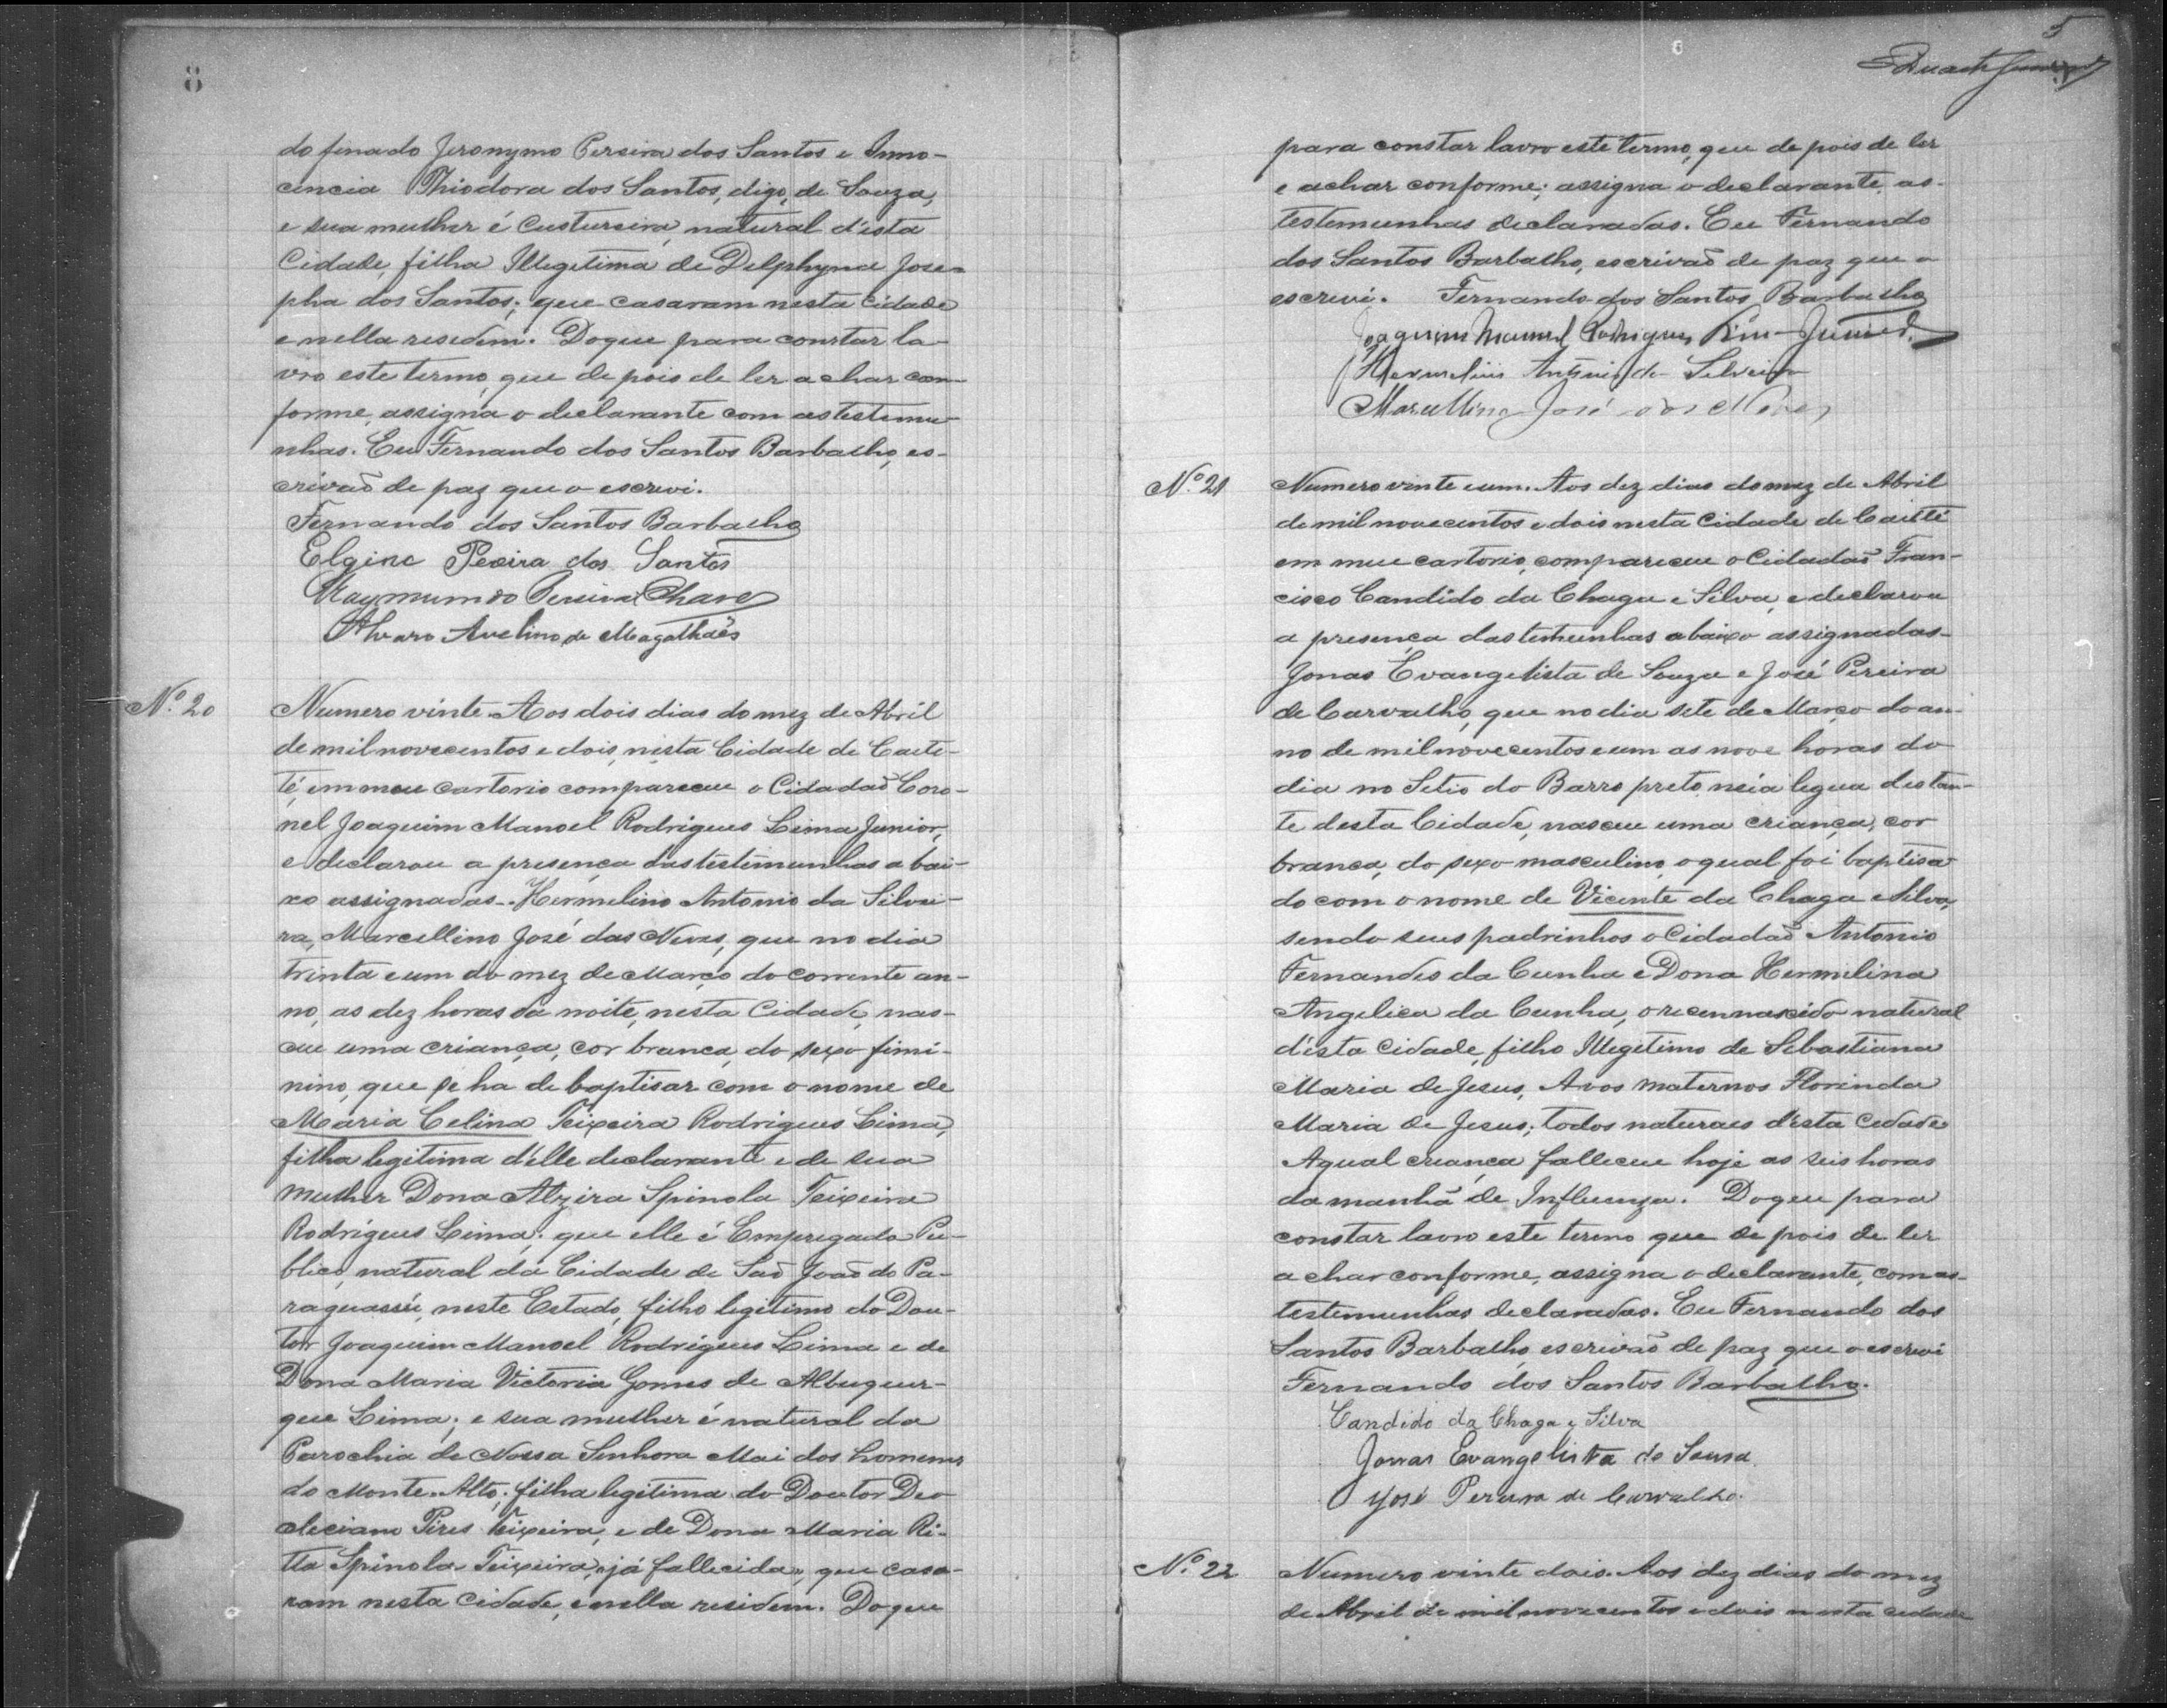 8
do finado Jeronymo Pereira dos Santos e Inno-
cencia Thiodora dos Santos, digo, de Souza,
e sua mulher é Custureira, natural d'esta
Cidade, filha Illegetima de Delphyna Jose-
pha dos Santos; que casaram nesta Cidade
e nella residem. Do que para constar la-
vro este termo, que de pois de ler achar con-
forme, assigna o declarante com as testemu-
nhas. Eu Fernando dos Santos Barbalho, es-
crivaõ de paz que o escrevi.
Fernando dos Santos Barbalho
Elgino Pereira dos Santos
Raymundo Pereira Chaves
Alvaro Avelino de Magalhães
Nº. 20
Numero vinte. Aos dois dias do mez de Abril
de mil novecentos e dois, nesta Cidade de Caete-
té, em meu cartorio compareceu o Cidadaõ Coro-
nel Joaquim Manoel Rodrigues Lima Junior,
e declarou a presença das testemunhas a bai-
xo assignadas. Hermelino Antonio da Silvei-
ra, Marcellino José das Neves, que no dia
trinta e um do mez de Março do corrente an-
no, as dez horas da noite, nesta Cidade, nas-
ceu uma criança, cor branca, do sexo femi-
nino, que se ha de baptisar com o nome de
Maria Celina Teixeira Rodrigues Lima,
filha legitima d'elle declarante e de sua
mulher Dona Alzira Spinola Teixeira
Rodrigues Lima; que elle é Empregado Pu-
blico, natural da Cidade de Saõ Joaõ do Pa-
raguassú, neste Estado, filho legitimo do Dou-
tor Joaquim Manoel Rodrigues Lima e de
Dona Maria Victoria Gomes de Albuquer-
que Lima; e sua mulher é natural da
Parochia de Nossa Senhora Mai dos homens
do Monte-Alto; filha legitima do Doutor Deo
cleciano Pires Teixeira, e de Dona Maria Ri-
tta Spinola Teixeira, já fallecida, que casa-
ram nesta Cidade, e nella residem. Do que
5
Duarte Junior
para constar lavro este termo, que de pois de ler
e achar conforme; assigna o declarante, as-
testemunhas declaradas. Eu Fernando
dos Santos Barbalho, escrivaõ de paz que o
escrevi. Fernando dos Santos Barbalho
Joaquim Manuel Rodrigues Lima Junior
Hermelino Antonio da Silveira
Marcellino José das Neves
Nº. 21
Numero vinte e um. Aos dez dias do mez de Abril
de mil novecentos e dois nesta Cidade de Caitté
em meu cartorio, compareceu o Cidadaõ Fran-
cisco Candido da Chaga e Silva, e declarou
a presença das temunhas abaixo assignadas-
Jonas Evangelista de Souza e José Pereira
de Carvalho, que no dia sete de Março do an-
no de mil novecentos e um as nove horas do
dia no Setio do Barro preto meia legua distan-
te desta Cidade, nasceu uma criança, cor
branca, do sexo masculino, o qual foi baptisa-
do com o nome de Vicente da Chaga e Silva,
sendo seus padrinhos o Cidadaõ Antonio
Fernandes da Cunha e Dona Hermilina
Angelica da Cunha, o recennascido natural
d'esta Cidade, filho Illegetimo de Sebastiana
Maria de Jesus, Avos maternos Florinda
Maria de Jesus; todos naturaes d'esta Cedade
A qual criança falleceu hoje as seis horas
da manhã de Influenza. Do que para
constar lavro este termo que de pois de ler
a char conforme, assigna o declarante, com as-
testemunhas declaradas. Eu Fernando dos
Santos Barbalho, escrivaõ de paz que o escrevi
Fernando dos Santos Barbalho.
Candido da Chaga e Silva
Jonas Evangelista de Sousa
José Pereira de Carvalho.
Nº. 22
Numero vinte dois. Aos dez dias do mez
de Abril de mil novecentos e dois nesta cedade